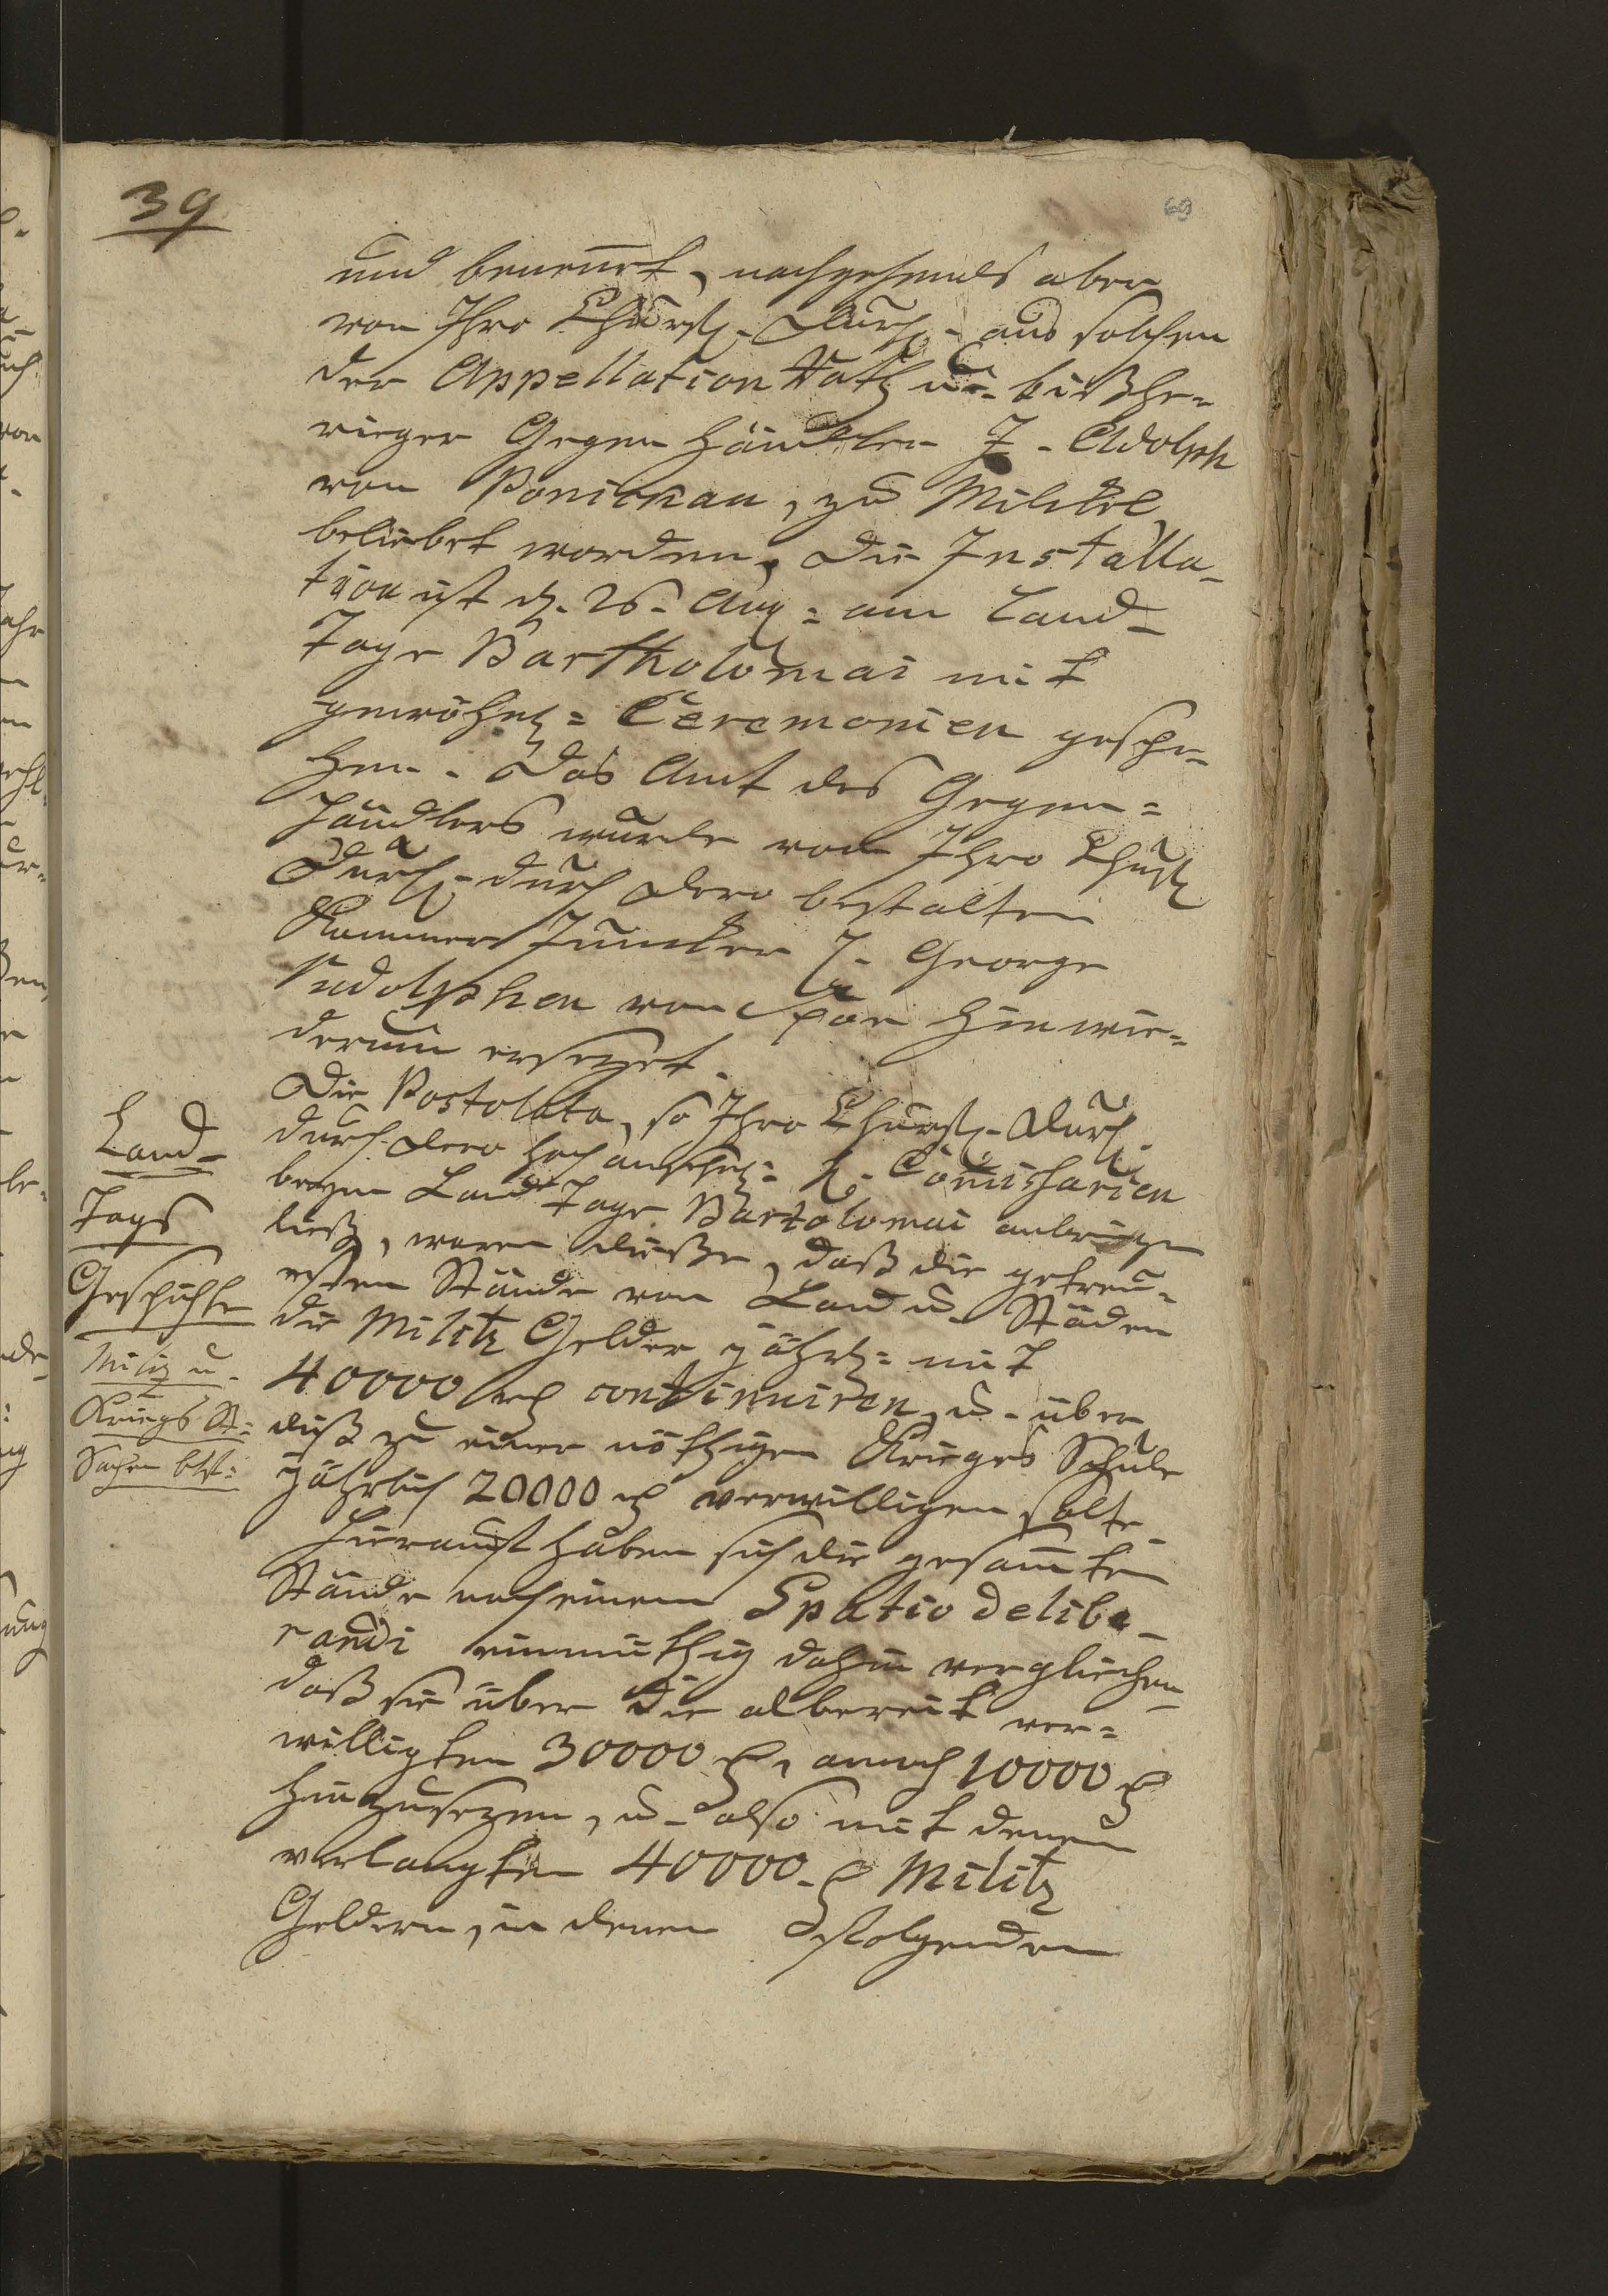 39
69
und benennt, nachgehends aber
von Ihro Churfl. Durchl. aus solchen
der Appellation Rath u. bißhe=
rieger Gegen Händler J. Adolph
von Ponickau, zu Milckel
beliebet worden, die Installa-
tion ist d. 26. Aug: am Land-
Tage Bartholomäi mit
gewöhnl: Ceremonien gesche-
hen. Das Amt des Gegen=
händlers wurde von Ihro Churfl
Durchl. durch dero bestalten
Kammer Juncker H. George
Rudolphen von Spor hinwie=
derum ersezet.
Die Postolata, so Ihro Churfl. Durchl.
durch dero hochansehnl: H. Comissarien
beym Land Tage Bartolomäi anbringen
ließ, waren dieße, daß die getreu=
esten Stände von Land u. Städen
die Militz Gelder jährl: mit
40000 rthl continuiren, u. über
diß zu einer nöthigen Krieges Schule
jährlich 20000 rthl verwilligen solte.
Hierauf haben sich die gesamten
Stände nach einem Spatio delibe-
randi einmüthig dahin verglichen,
daß sie über die albereit ver=
willigten 30000 rthl, annoch 10000 rthl
hinzusezen, u. also mit denen
verlangten 40000. rthl Militz
Geldern, in denen folgenden
Land-
Tags
Geschichte
Miliz u.
Kriegs St=
Sachen btr: